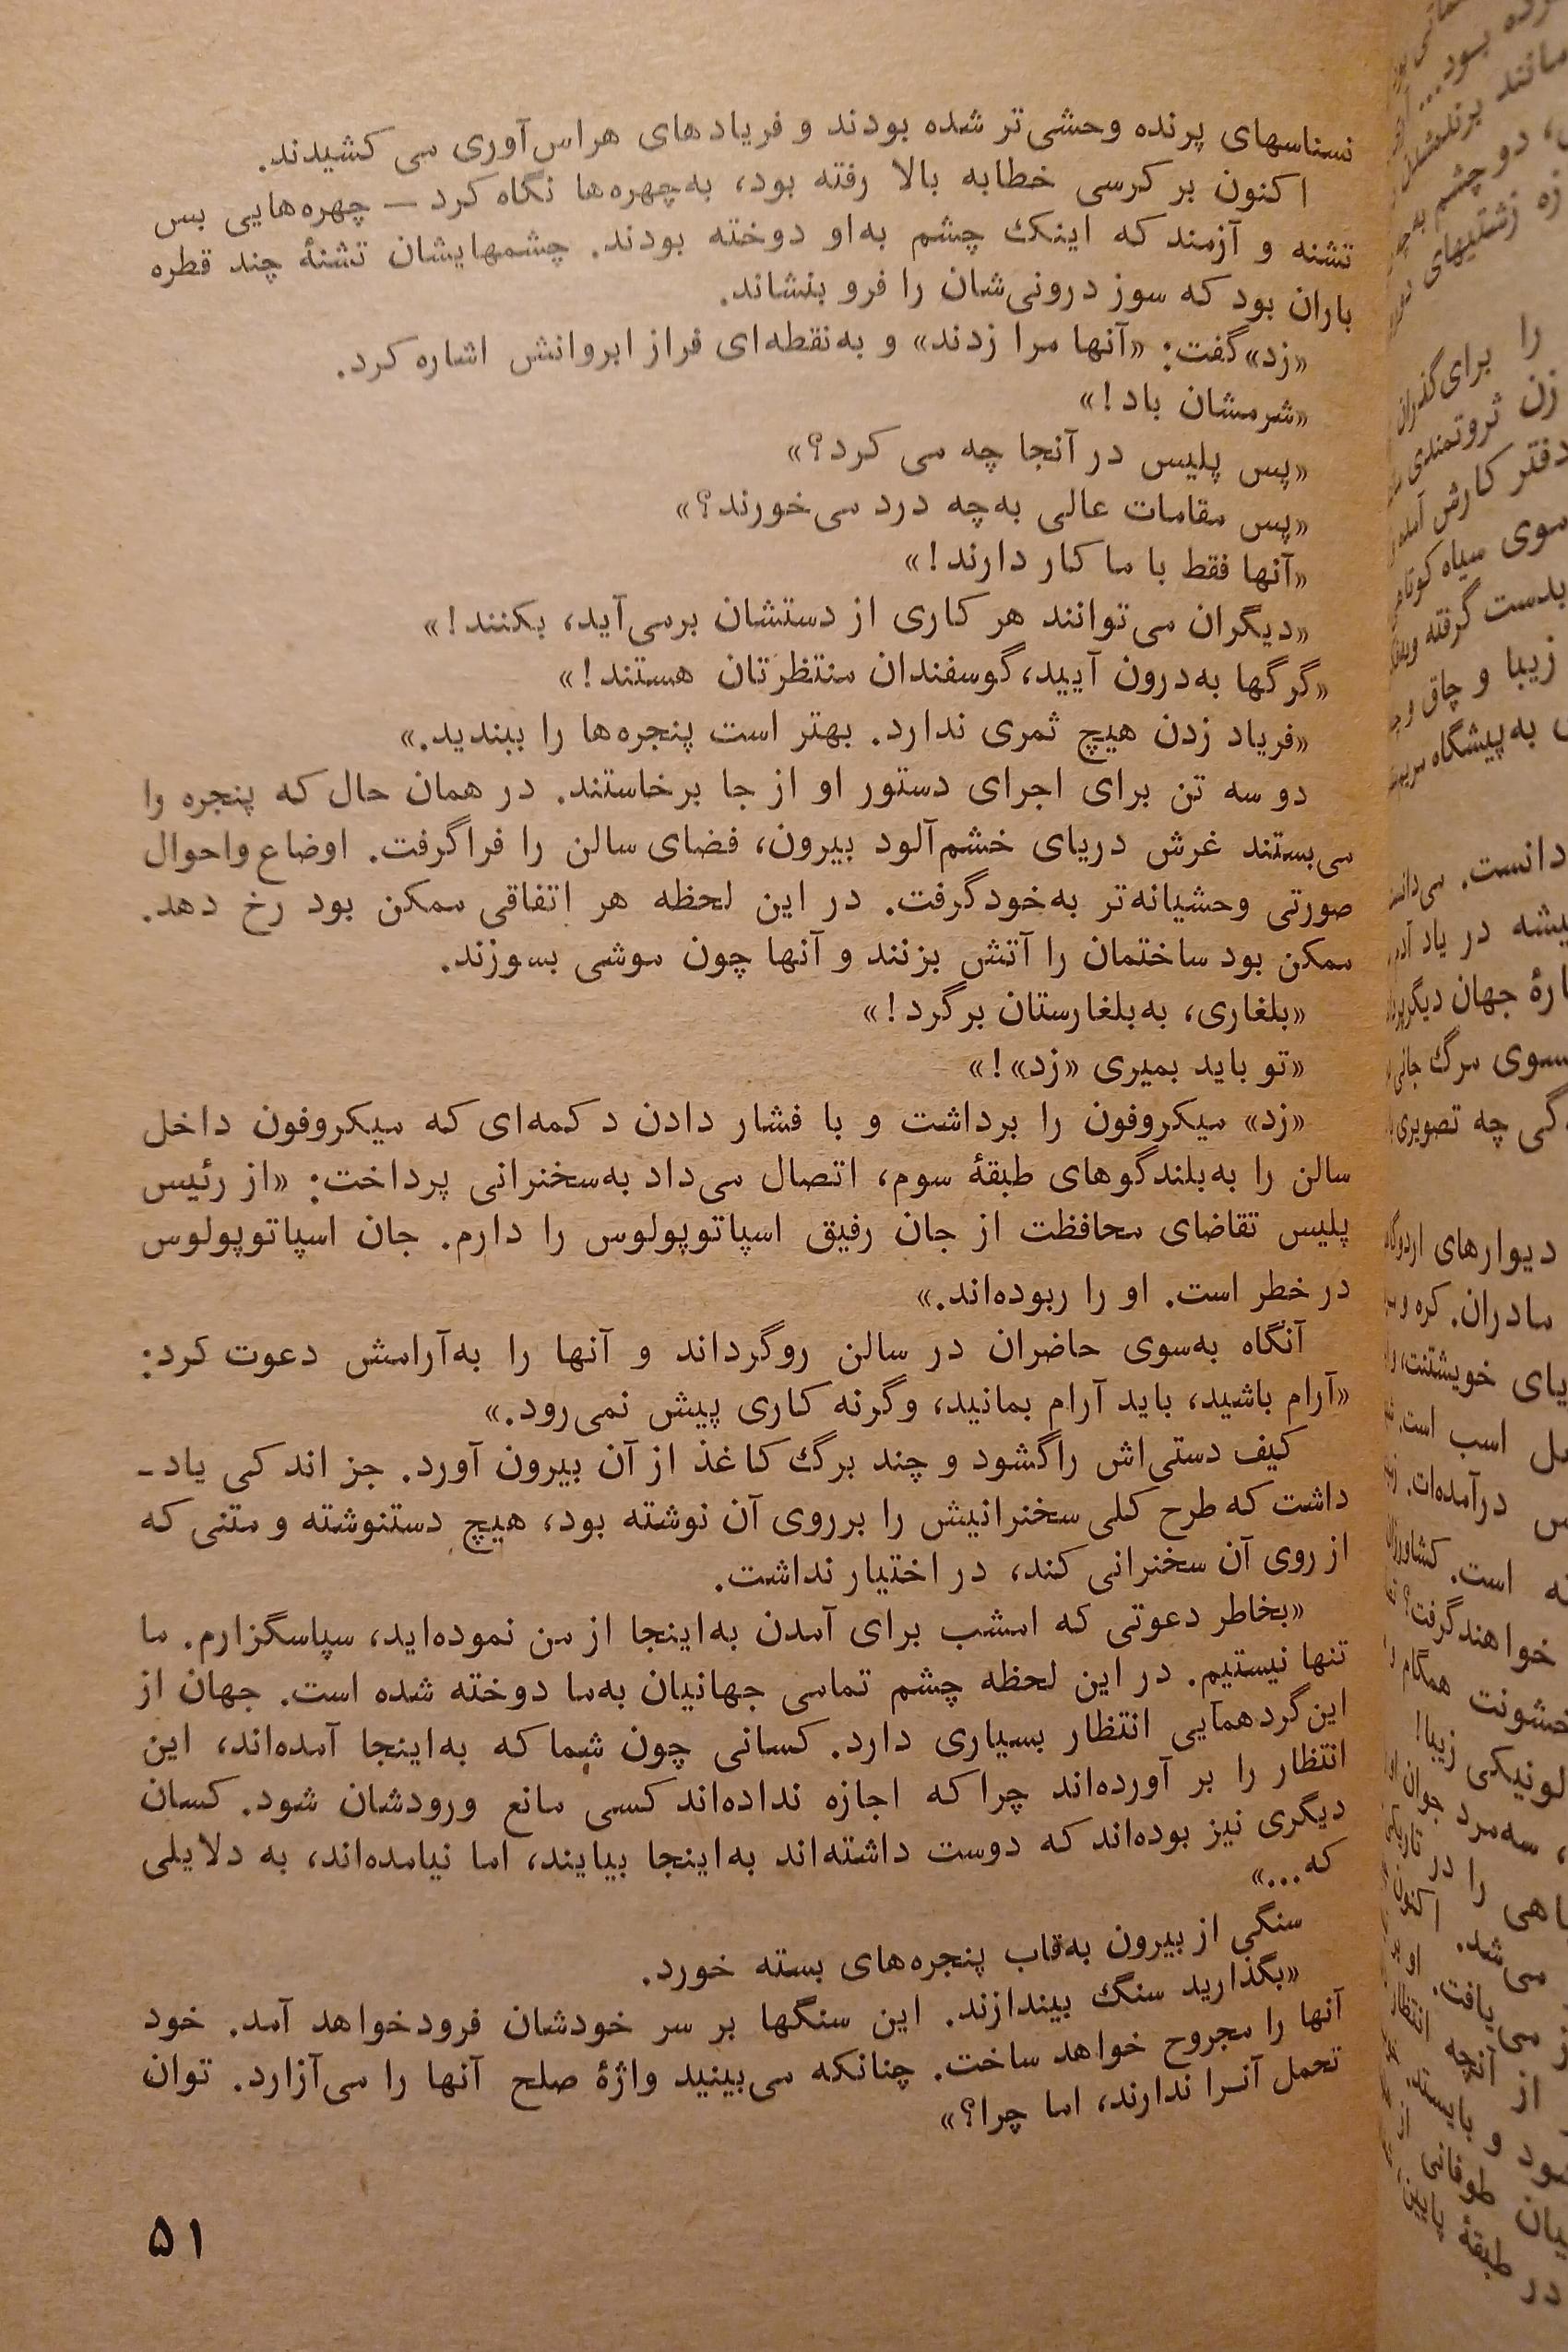 نسناسهای پرنده وحشی‌تر شده بودند و فریادهای هراس‌آوری می کشیدند.
اکنون بر کرسی خطابه بالا رفته بود، به‌چهره‌ها نگاه کرد — چهره‌هایی بس
تشنه و آزمند که اینک چشم به‌او دوخته بودند. چشمهایشان تشنهٔ چند قطره
باران بود که سوز درونی‌شان را فرو بنشاند.
«زد» گفت: «آنها مرا زدند» و به‌نقطه‌ای فراز ابروانش اشاره کرد.
«شرمشان باد!»
«پس پلیس در آنجا چه می کرد؟»
«پس مقامات عالی به‌چه درد می‌خورند؟»
«آنها فقط با ما کار دارند!»
«دیگران می‌توانند هر کاری از دستشان برمی‌آید، بکنند!»
«گرگها به‌درون آیید، گوسفندان منتظرتان هستند!»
«فریاد زدن هیچ ثمری ندارد. بهتر است پنجره‌ها را ببندید.»
دو سه تن برای اجرای دستور او از جا برخاستند. در همان حال که پنجره را
می‌بستند غرش دریای خشم‌آلود بیرون، فضای سالن را فراگرفت. اوضاع واحوال
صورتی وحشیانه‌تر به‌خود گرفت. در این لحظه هر اتفاقی ممکن بود رخ دهد.
ممکن بود ساختمان را آتش بزنند و آنها چون موشی بسوزند.
«بلغاری، به‌بلغارستان برگرد!»
«تو باید بمیری «زد»!»
«زد» میکروفون را برداشت و با فشار دادن دکمه‌ای که میکروفون داخل
سالن را به‌بلندگوهای طبقهٔ سوم، اتصال می‌داد به‌سخنرانی پرداخت: «از رئیس
پلیس تقاضای محافظت از جان رفیق اسپاتوپولوس را دارم. جان اسپاتوپولوس
در خطر است. او را ربوده‌اند.»
آنگاه به‌سوی حاضران در سالن روگرداند و آنها را به‌آرامش دعوت کرد:
«آرام باشید، باید آرام بمانید، وگرنه کاری پیش نمی‌رود.»
کیف دستی‌اش را گشود و چند برگ کاغذ از آن بیرون آورد. جز اندکی یاد-
داشت که طرح کلی سخنرانیش را برروی آن نوشته بود، هیچ دستنوشته و متنی که
از روی آن سخنرانی کند، در اختیار نداشت.
«بخاطر دعوتی که امشب برای آمدن به‌اینجا از من نموده‌اید، سپاسگزارم. ما
تنها نیستیم. در این لحظه چشم تمامی جهانیان به‌ما دوخته شده است. جهان از
این گردهمآیی انتظار بسیاری دارد. کسانی چون شما که به‌اینجا آمده‌اند، این
انتظار را بر آورده‌اند چرا که اجازه نداده‌اند کسی مانع ورودشان شود. کسان
دیگری نیز بوده‌اند که دوست داشته‌اند به‌اینجا بیایند، اما نیامده‌اند، به دلایلی
که...»
سنگی از بیرون به‌قاب پنجره‌های بسته خورد.
«بگذارید سنگ بیندازند. این سنگها بر سر خودشان فرودخواهد آمد. خود
آنها را مجروح خواهد ساخت. چنانکه می‌بینید واژهٔ صلح آنها را می‌آزارد. توان
تحمل آنرا ندارند، اما چرا؟»
۵۱